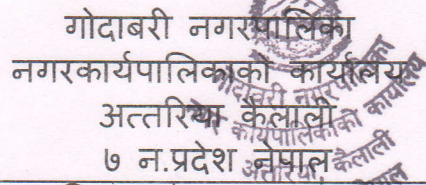 गोदाबरी नगरपालिका
नगरकार्यपालिकाको कार्यालय
अत्तरिया कैलाली
७ न.प्रदेश नेपाल
गोदावरी नगरपालिका
नगर कार्यपालिकाको कार्यालय
अत्तरिया, कैलाली